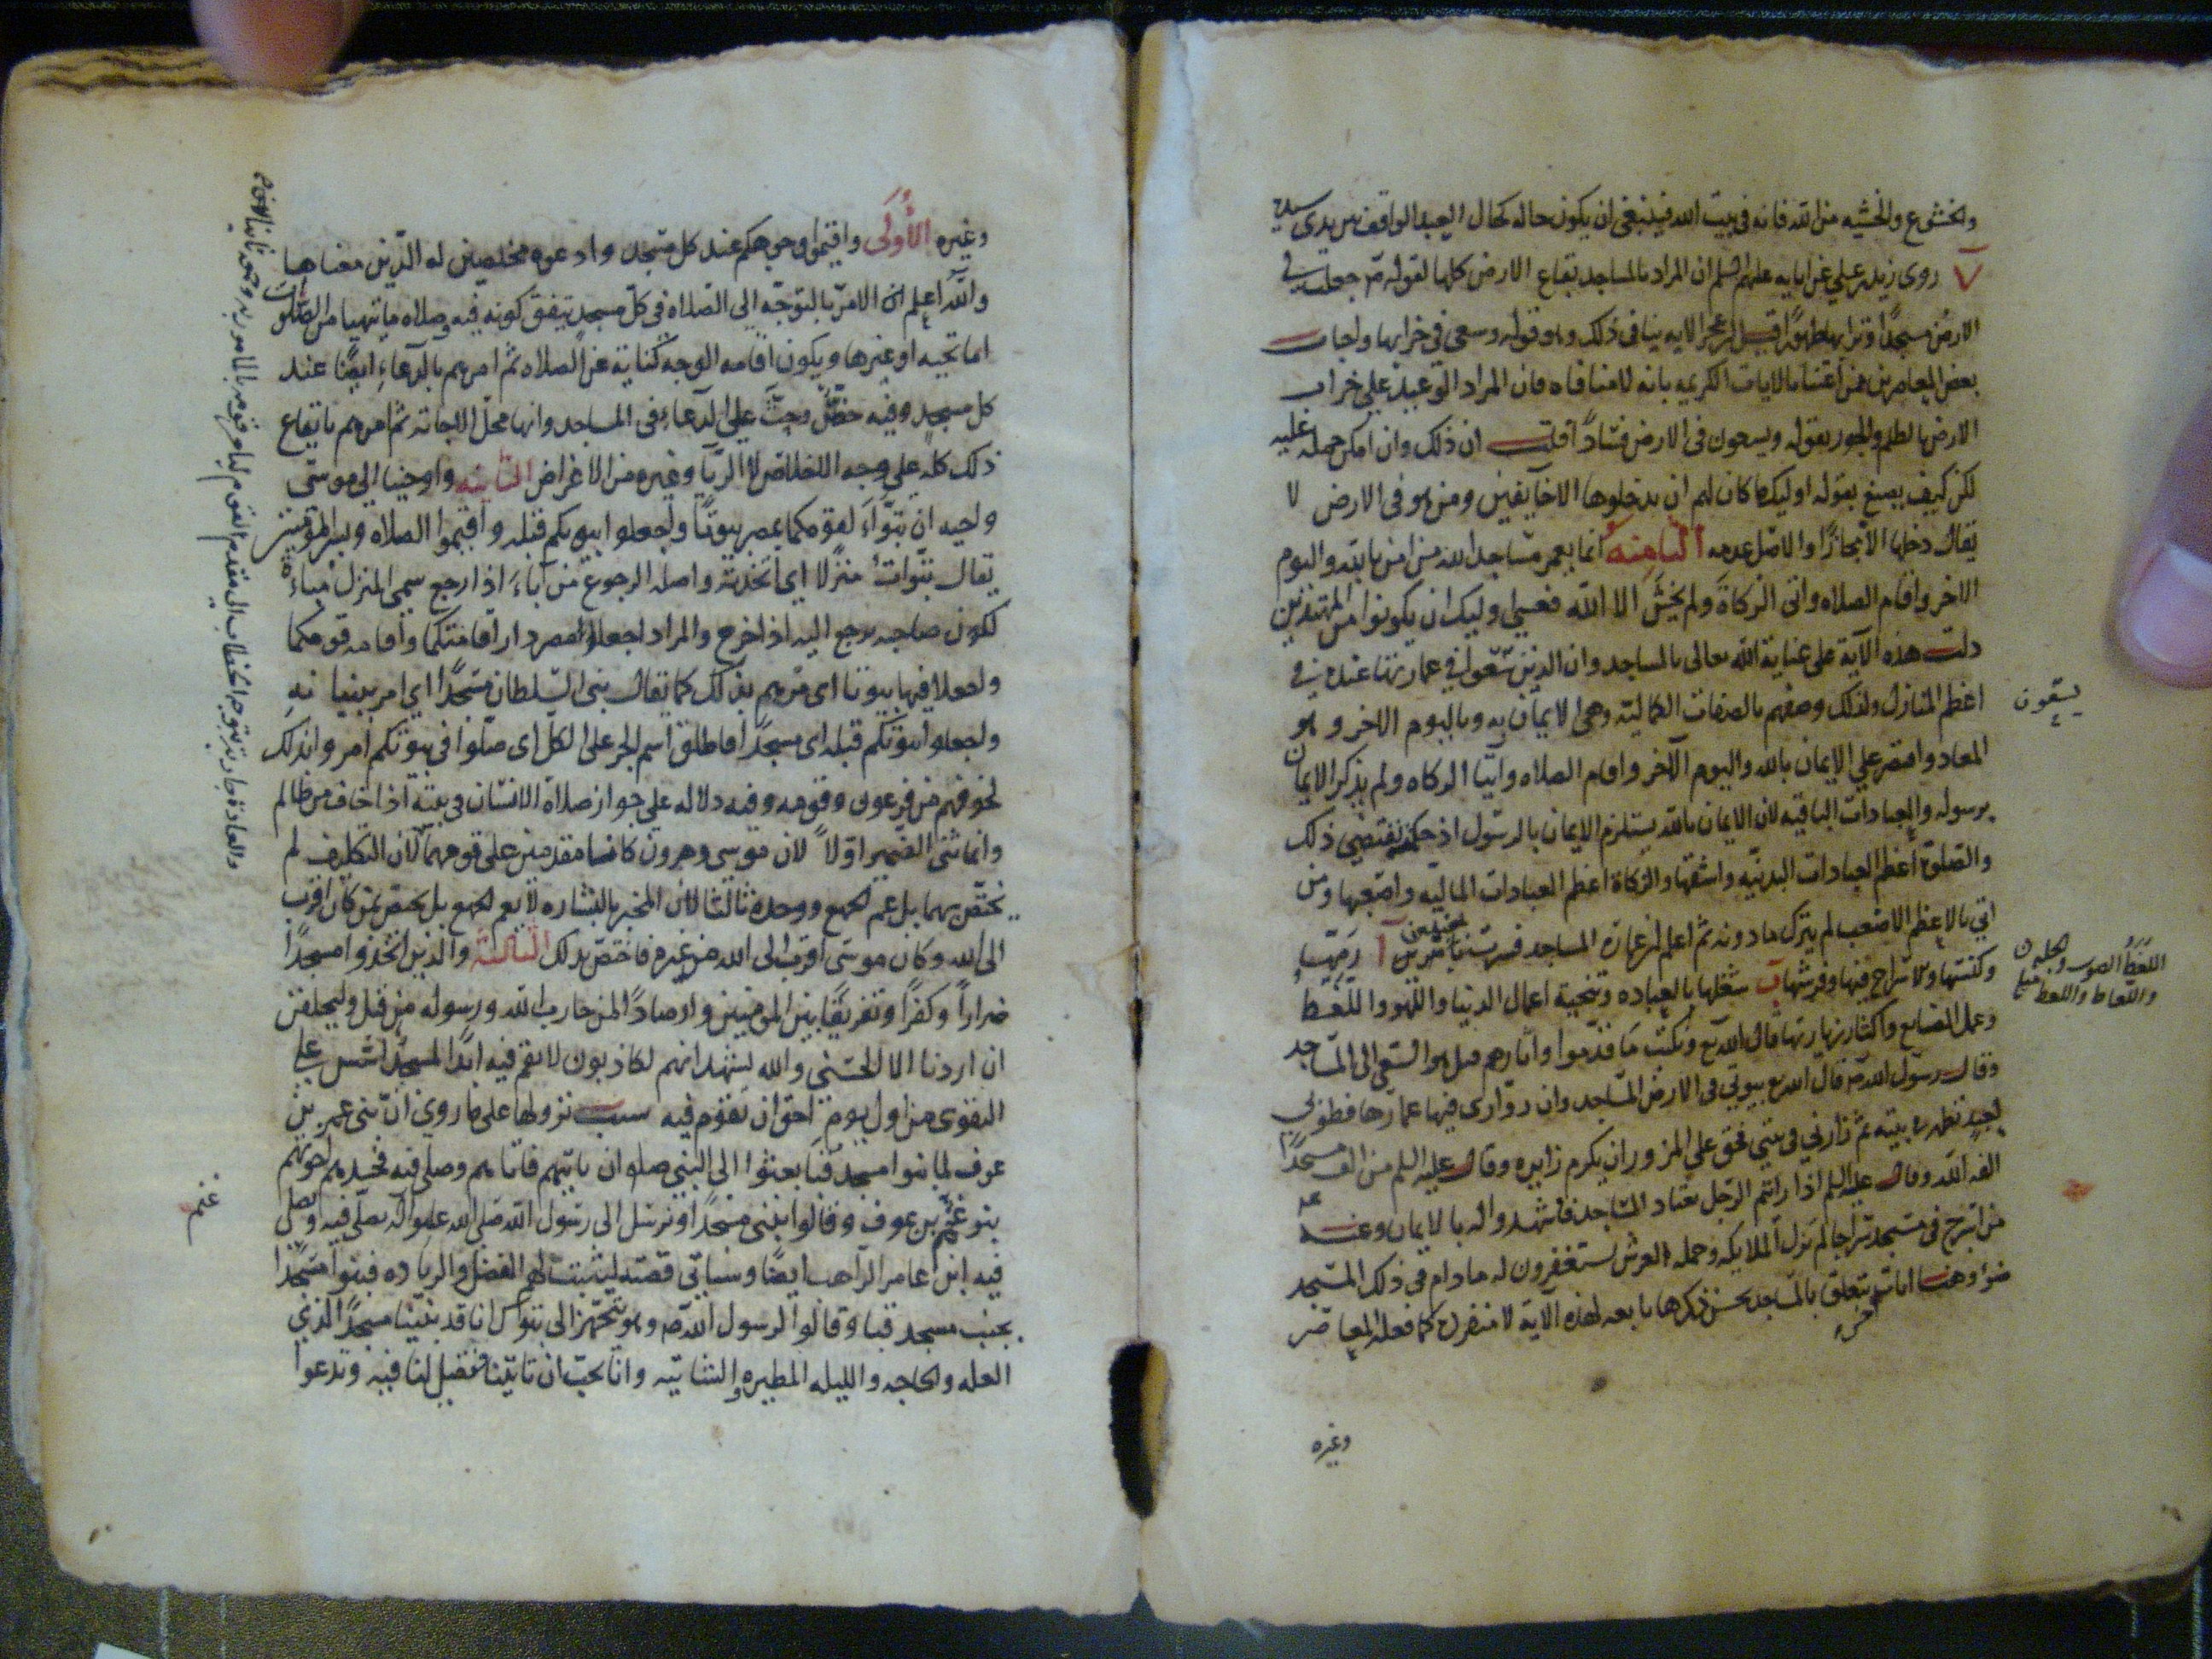 والخشوع والخشيه من الله فانه فى بيت الله فينبغى ان يكون حاله كحال العبد الواقف بين يدى سيده
٧ روى زيد بن على عن ابايه عليهم السلم ان المراد بالمساجد بقاع الارض كلها لقوله ص جعلت لى
الارض مسجدًا وترابها طهورًا قيل ان عجز الايه ينافى ذلك وهو قوله وسعى فى خرابها واجاب
بعض المعاصرين ممن اعتنا بالايات الكريمه بانه لا منافاه فان المراد التوعيد على خراب
الارض بالظلم والجور بقوله ويسعون فى الارض فسادًا قلت ان ذلك وان امكن حمله عليه
لكن كيف يصنع بقوله اوليك ما كان لهم ان يدخلوها الا خايفين ومن هو فى الارض لا
يقال دخلها الا مجازًا والاصل عدمه الثامنه انما يعمر مساجد الله من امن بالله واليوم
الاخر واقام الصلاه واتى الزكاة ولم يخش الا الله فعسى اوليك ان يكونوا من المهتدين
دلت هذه الآية على عناية الله تعالى بالمساجد وان الذين سعوا فى عمارتها عنده فى
اعظم المنازل ولذلك وصفهم بالصفات الكماليه وهى الايمان به وباليوم الاخر وهو
المعاد واقتصر على الايمان بالله واليوم الآخر واقام الصلاه وايتا الزكاه ولم يذكر الايمان
برسوله والعبادات الباقيه لان الايمان بالله يستلزم الايمان بالرسول اذ حكمته تقتضى ذلك
والصلوة اعظم العبادات البدنيه واشقها والزكاة اعظم العبادات الماليه واصعبها ومن
اتى بالاعظم الاصعب لم يترك ما دونه ثم اعلم ان عمارة المساجد فسرت بامرين آ رمّها
وكنسها والاسراج فيها وفرشها ب شغلها بالعباده وتنحية اعمال الدنيا واللهو واللغط
وعمل الصنايع واكثار زيارتها قال الله تع ونكتب ما قدموا وآثارهم قيل هو السعى الى المساجد
وقال رسول الله ص قال الله تع بيوتى فى الارض المساجد وان زوّارى فيها عمارها فطوبى
لعبد تطهر فى بيته ثم زارنى فى بيتى فحق على المزور ان يكرم زايره وقال عليه السلم من الف مسجدًا
الفه الله وقال عليه السلم اذا رايتم الرجل يعتاد المساجد فاشهدوا له بالايمان وعنه
من اسرج فى مسجد سراجا لم تزل الملايكه وحمله العرش يستغفرون له ما دام فى ذلك المسجد
ضوا وهنا ايات اخر تتعلق بالمساجد يحسن ذكرها تابعه لهذه الآية لا منفرده كما فعله المعاصر
وغيره
يسعون
اللغط الصوت والجلبه
واللغاط واللغط
وغيره الأولى واقيموا وجوهكم عند كل مسجد وادعوه مخلصين له الدين معناها
والله اعلم ان الامر بالتوجه الى الصلاه فى كل مسجد يتفق كونه فيه وصلاه ما يتهيا من الصلوات
اما تحيه او غيرها ويكون اقامه الوجه كناية عن الصلاه ثم امرهم بالدعاء ايضًا عند
كل مسجد وفيه حضّ وحثّ على الدعاء فى المساجد وانها محل الاجابة ثم امرهم بايقاع
ذلك كله على وجه الاخلاص لا الريا وغيره من الاغراض الثانيه واوحينا الى موسى
واخيه ان تبوّآ لقومكما بمصر بيوتًا واجعلوا بيوتكم قبله واقيموا الصلاه وبشر المؤمنين
يقال تبوّات منزلا اى اتخذته واصله الرجوع من باء اذا رجع سمى المنزل مباءة
لكون صاحبه يرجع اليه اذا خرج والمراد اجعلا مصر دار اقامتكما واقامه قومكما
واجعلا فيها بيوتا اى مرهم بذلك كما يقال بنى السلطان مسجدًا اى امر ببنيانه
واجعلوا بيوتكم قبله اى مسجدًا فاطلق اسم الجزء على الكل اى صلّوا فى بيوتكم امروا بذلك
لخوفهم من فرعون وقومه وفيه دلاله على جواز صلاة الانسان فى بيته اذا خاف من ظالم
وانما ثنى الضمير اولاً لان موسى وهرون كانا مقدمين على قومهما لان التكليف لم
يختص بهما بل عم الجميع ووحده ثالثا لان المخبر بالبشاره لا يعم الجميع بل يختص بمن كان اقرب
الى الله وكان موسى اقرب الى الله من غيره فاختص بذلك الثالثه والذين اتخذوا مسجدًا
ضرارًا وكفرًا وتفريقًا بين المؤمنين وارصادًا لمن حارب الله ورسوله من قبل وليحلفن
ان اردنا الا الحسنى والله يشهد انهم لكاذبون لا تقم فيه ابدًا لمسجد اسس على
التقوى من اول يوم احق ان تقوم فيه سبب نزولها على ما روى انّ بنى عمرو بن
عوف لما بنوا مسجد قبا بعثوا الى النبى صلم ان ياتيهم فاتاهم وصلى فيه فحسدهم اخوتهم
بنو غنم بن عوف وقالوا نبنى مسجدًا ونرسل الى رسول الله صلى الله عليه وآله يصلّى فيه ويصلى
فيه ابن عامر الراهب ايضًا وسياتى قصته ليثبت لهم الفضل والزياده فبنوا مسجدًا
بجنب مسجد قبا وقالوا لرسول الله ص وهو يتجهز الى تبوك انا قد بنينا مسجدًا لذى
العله والحاجه والليله المطيره والشاتيه وانا نحب ان تاتينا فتصلى لنا فيه وتدعوا
غنم